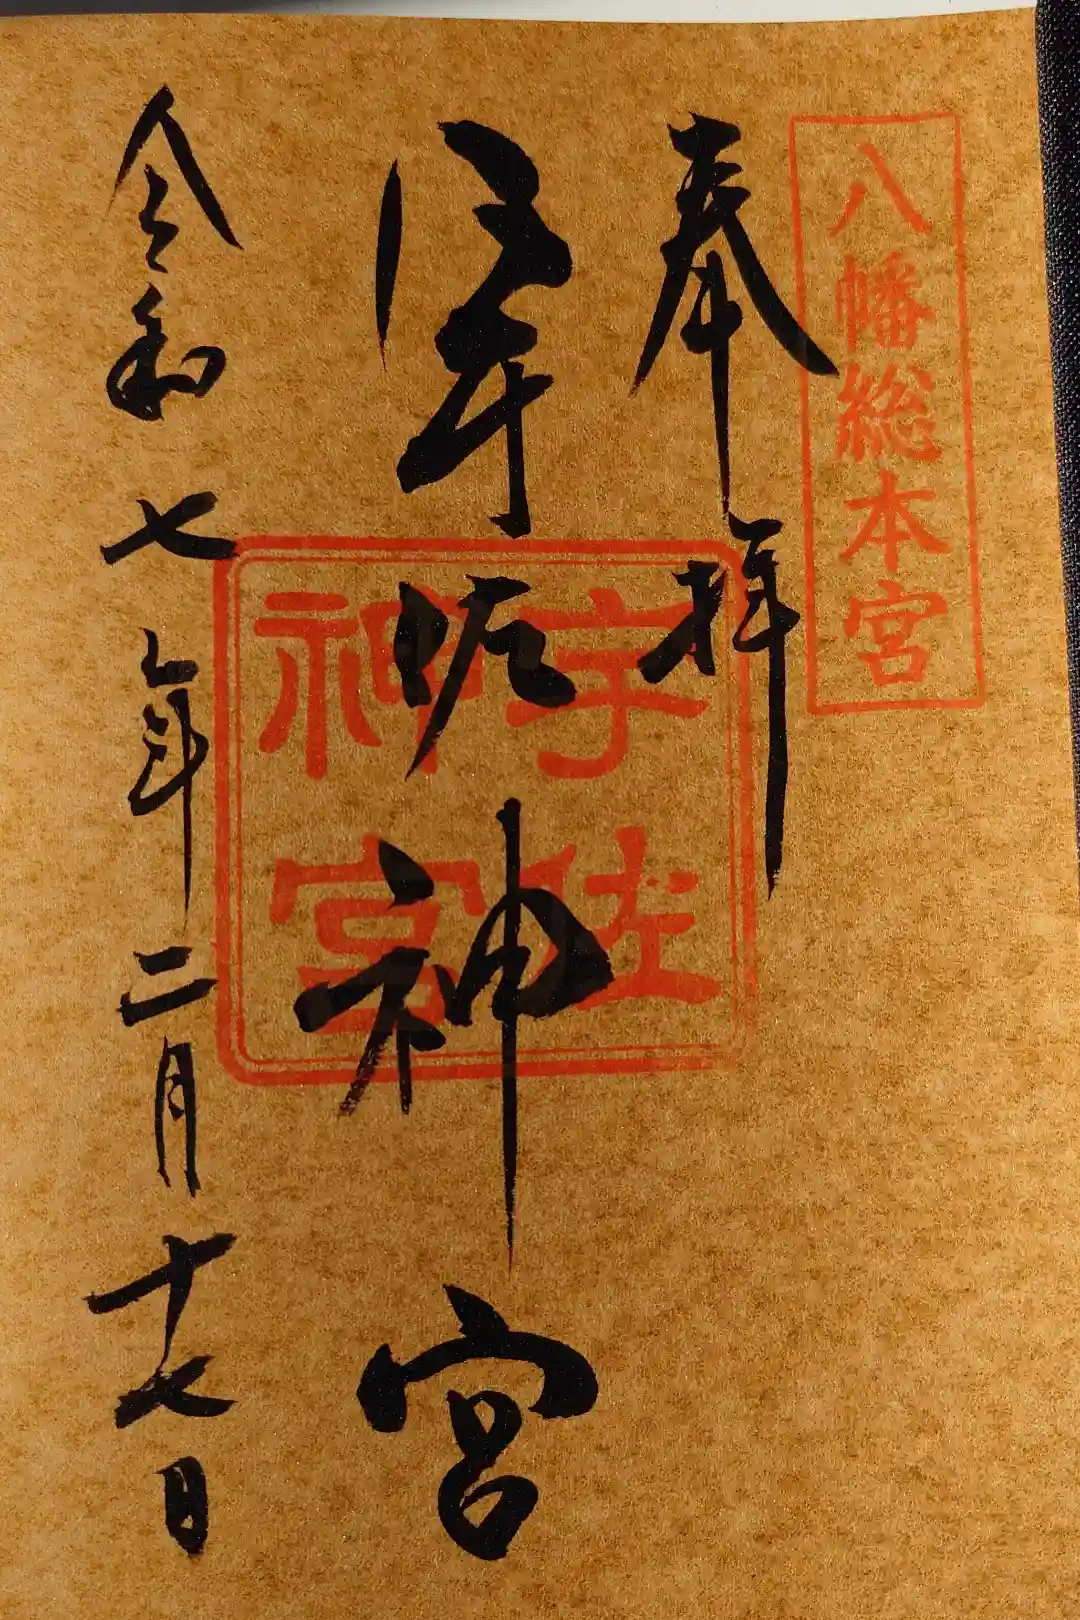 八幡総本宮
奉拝
宇佐神宮
宇佐神宮
令和七年二月十七日